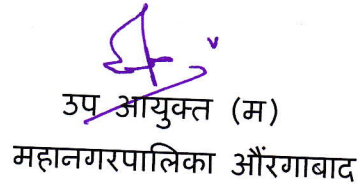 उप आयुक्त (म)
महानगरपालिका औरंगाबाद